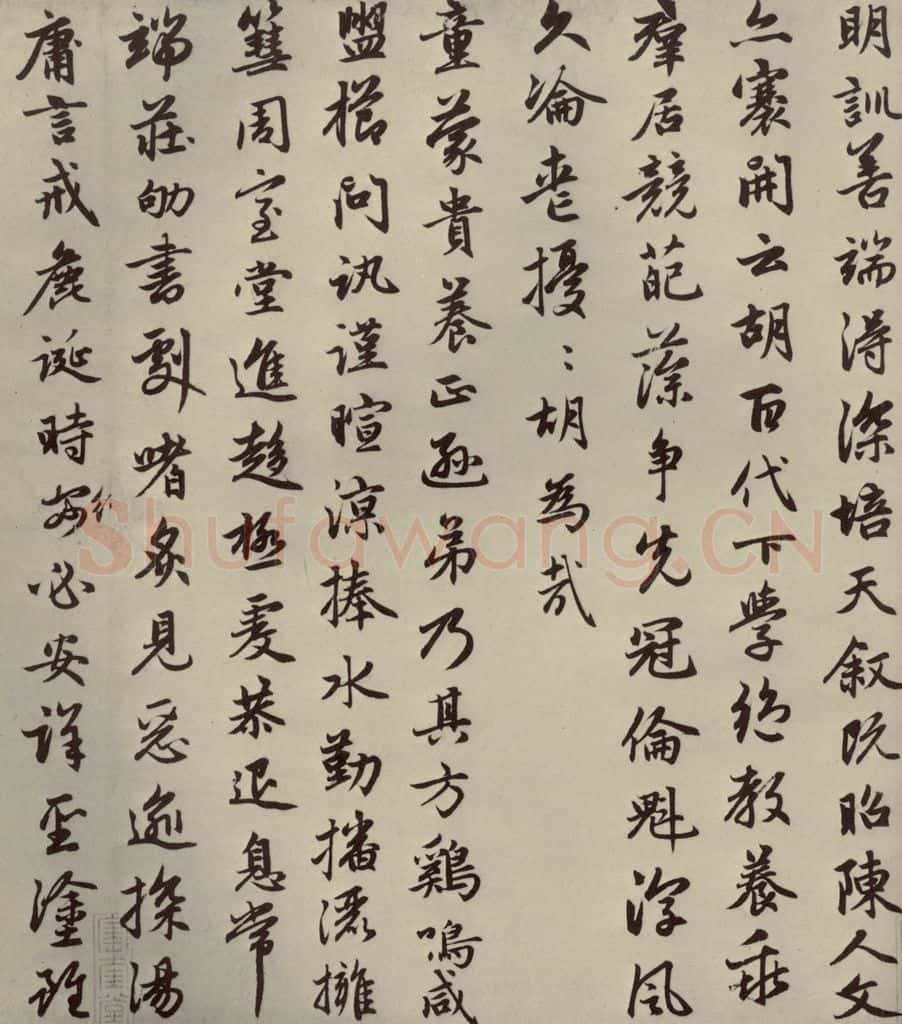 明訓善端得深培天叙既昭陳人文
亦褰開云胡百代下學絶教養乖
羣居競葩藻争先冠倫魁淳風
久淪喪擾〻胡為哉
童蒙貴養正遜弟乃其方鷄鳴咸
盥櫛問訊謹暄涼捧水勤播灑擁
篲周室堂進趨極虔恭退息常
端莊劬書劇嗜炙見惡逾探湯
庸言戒麄誕時行必安詳聖塗雖
Shufawang.CN